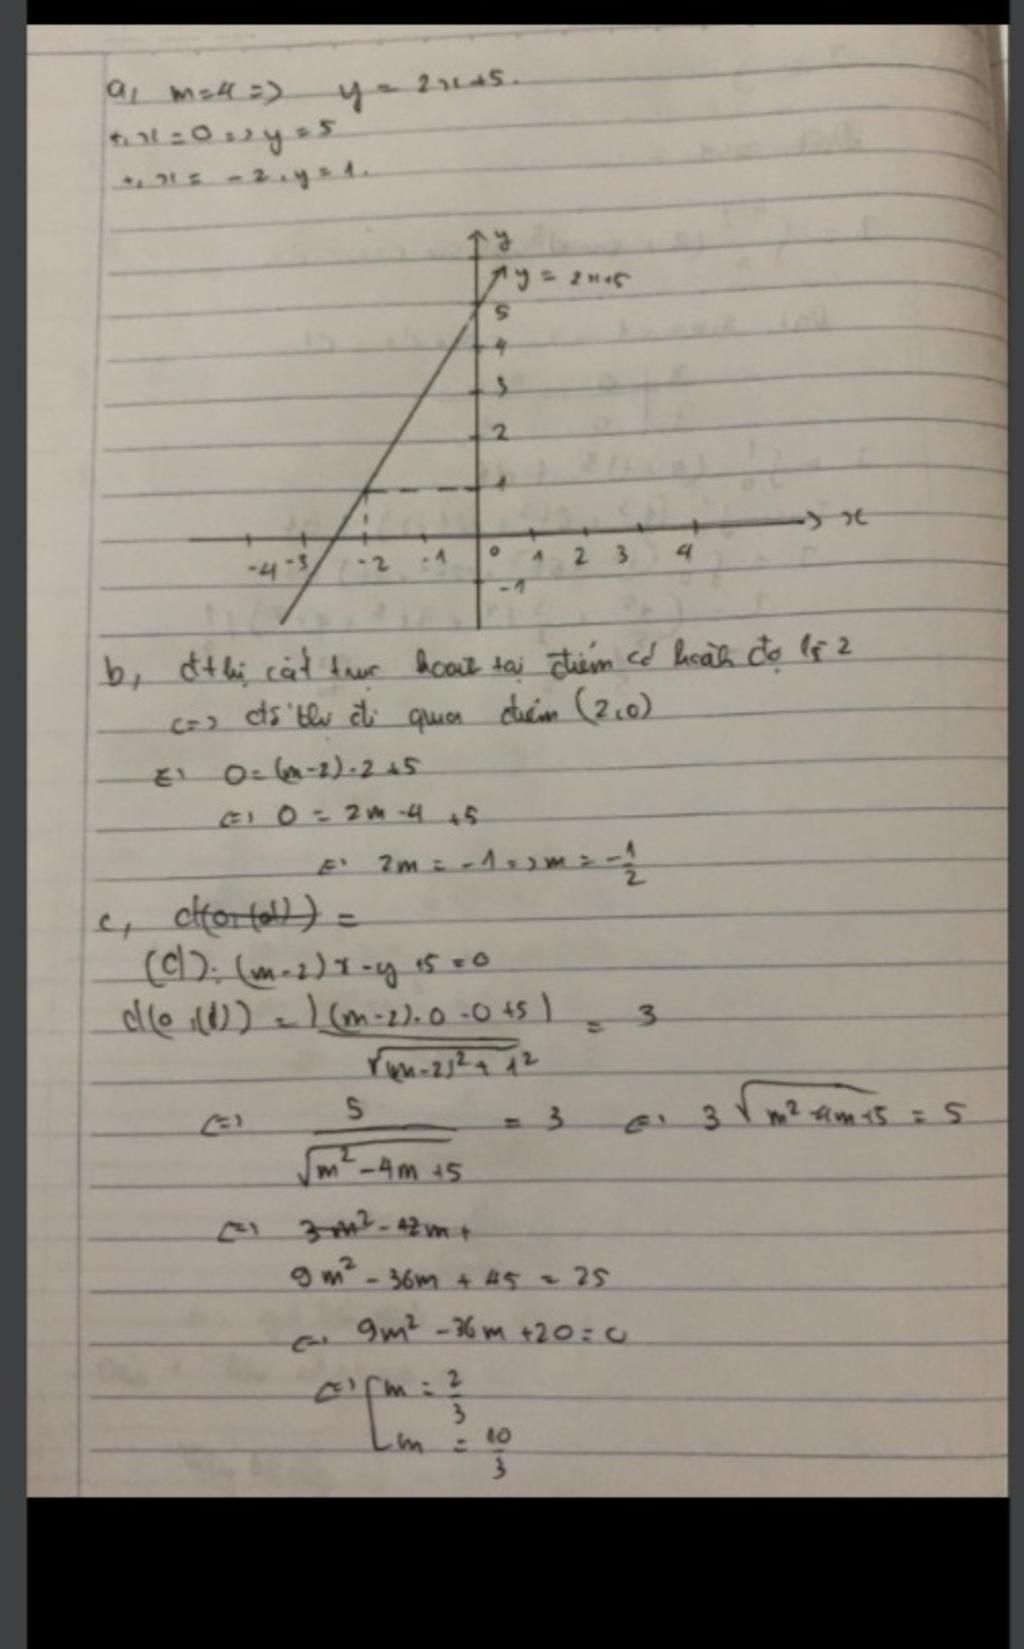 a, m=4 => y = 2x+5.
+, x = 0 => y = 5
+, x = -2, y = 1.
y
y = 2x+5
5
4
3
2
1
x
-4 -3 -2 -1 0 1 2 3 4
-1
b, đthị cắt trục hoành tại điểm có hoành độ là 2
<=> đồ thị đi qua điểm (2,0)
<=> 0=(m-2).2+5
<=> 0 = 2m-4 +5
<=> 2m = -1 => m = -1/2
c, d(0,(d)) =
(d): (m-2)x-y+5=0
d(0,(d)) = |(m-2).0-0+5| / √(m-2)²+1² = 3
<=> 5/√m²-4m+5 = 3 <=> 3√m²-4m+5 = 5
<=> 3m²-12m+
9m² - 36m + 45 = 25
<=> 9m² - 36m + 20 = 0
<=> [m = 2/3
m = 10/3